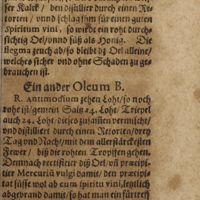 ser Kalck / den distillier durch einen Re-
torten / vnnd schlags ihm für einen guten
Spiritum vini, so wirdt ein roht durch-
sichtig Oel/vnnd süß als Honig. Die
flegma zeuch ab/so bleibt dz Oel alleine/
welches sicher vnd ohne Schaden zu ge-
brauchen ist.
Ein ander Oleum B.
R. Antimonium zehen Loht/so noch
rohe ist/gemein Saltz 24. Loht. Triepel
auch 24. Loht. diß zusammen vermischt/
vnd distilliert durch einen Retorten/drey
Tag vnd Nacht/mit dem allerstärckesten
Fewer / biß die rohten Tropffen gehen.
Demnach rectificier diß Oel/vñ præcipi-
tier Mercuriũ vulgi damit/den præcipi-
tat süsse wol ab cum spiritu vini,letzlich
abgebrand damit/so hat man ein fürtreff